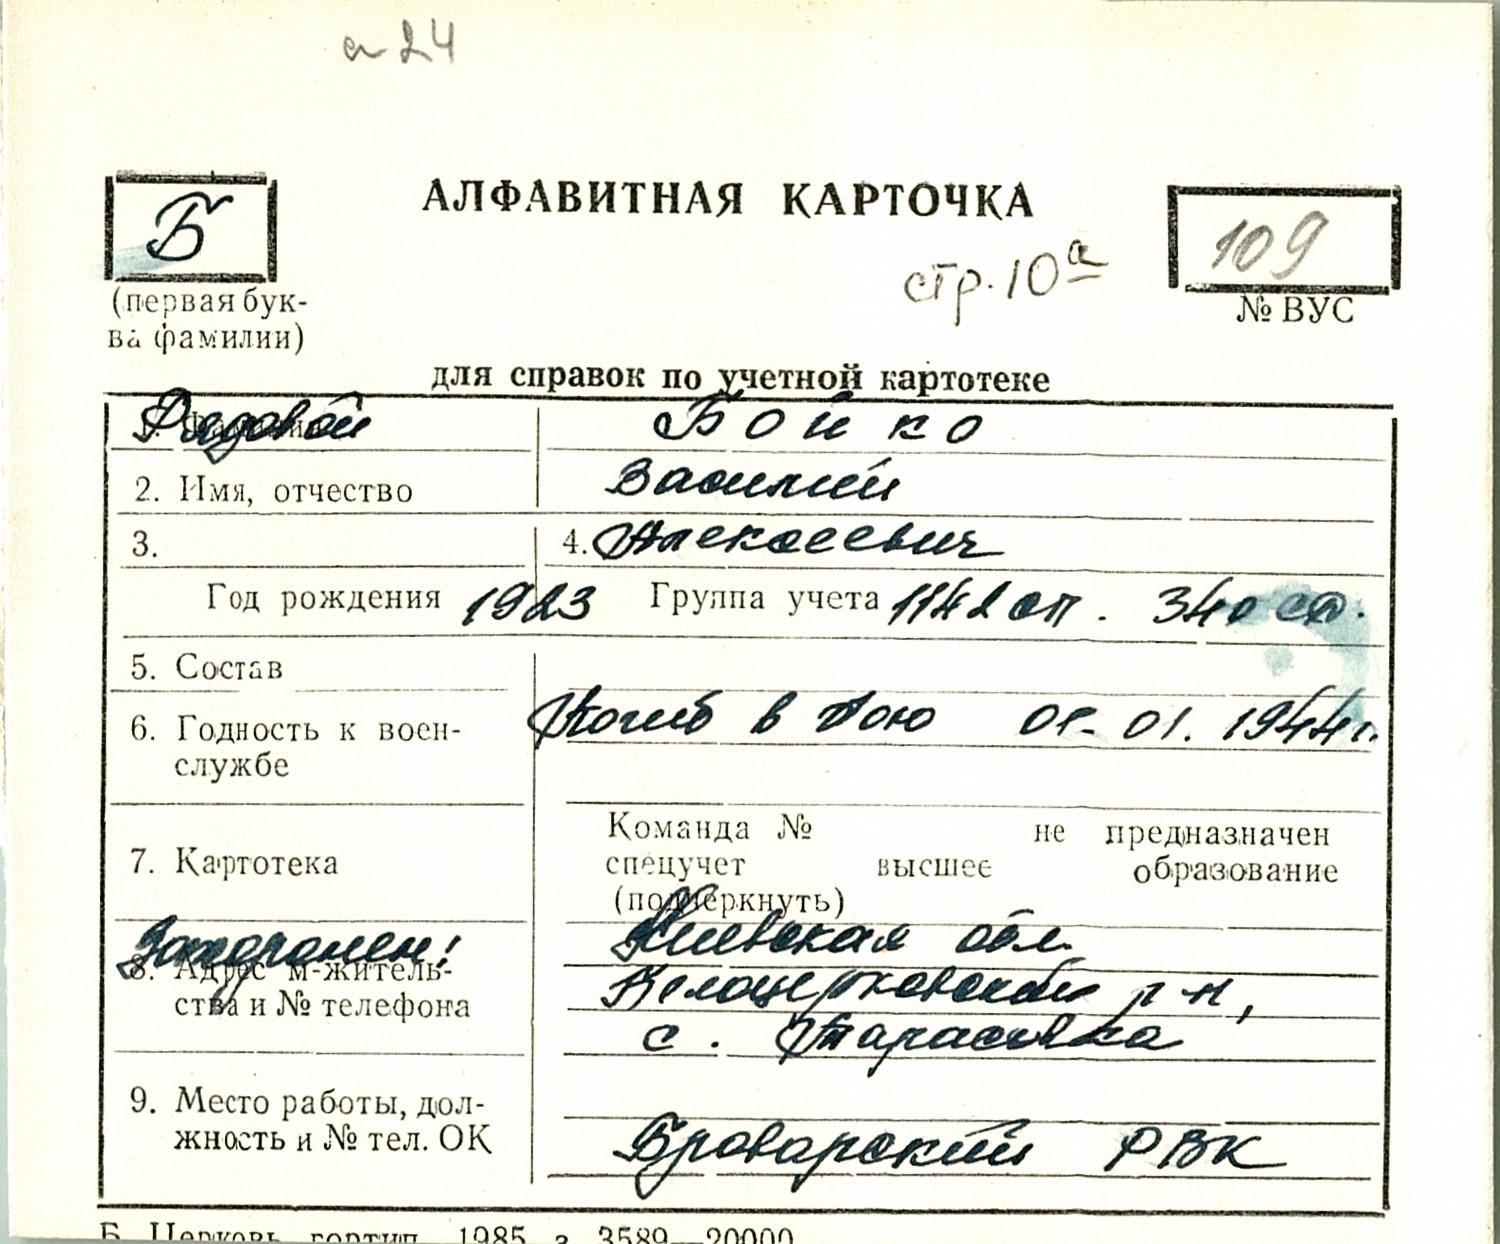 а 24
Б
АЛФАВИТНАЯ КАРТОЧКА
109
стр. 10а
(первая бук-
ва фамилии)
№ ВУС
для справок по учетной картотеке
Рядовой Бойко
2. Имя, отчество Василий
3. 4. Алексеевич
Год рождения 1923 Группа учета 1142 сп. 340 сд.
5. Состав
6. Годность к воен-
службе
Погиб в бою 01.01.1944г.
7. Картотека
Команда № не предназначен
спецучет высшее образование
(подчеркнуть)
Захоронен:
8. Адрес м-житель-
ства и № телефона
Киевская обл.
Белоцерковский р-н,
с. Тарасовка
9. Место работы, дол-
жность и № тел. ОК
Броварский РВК
Б. Церковь, гортип. 1985 з. 3589—20000